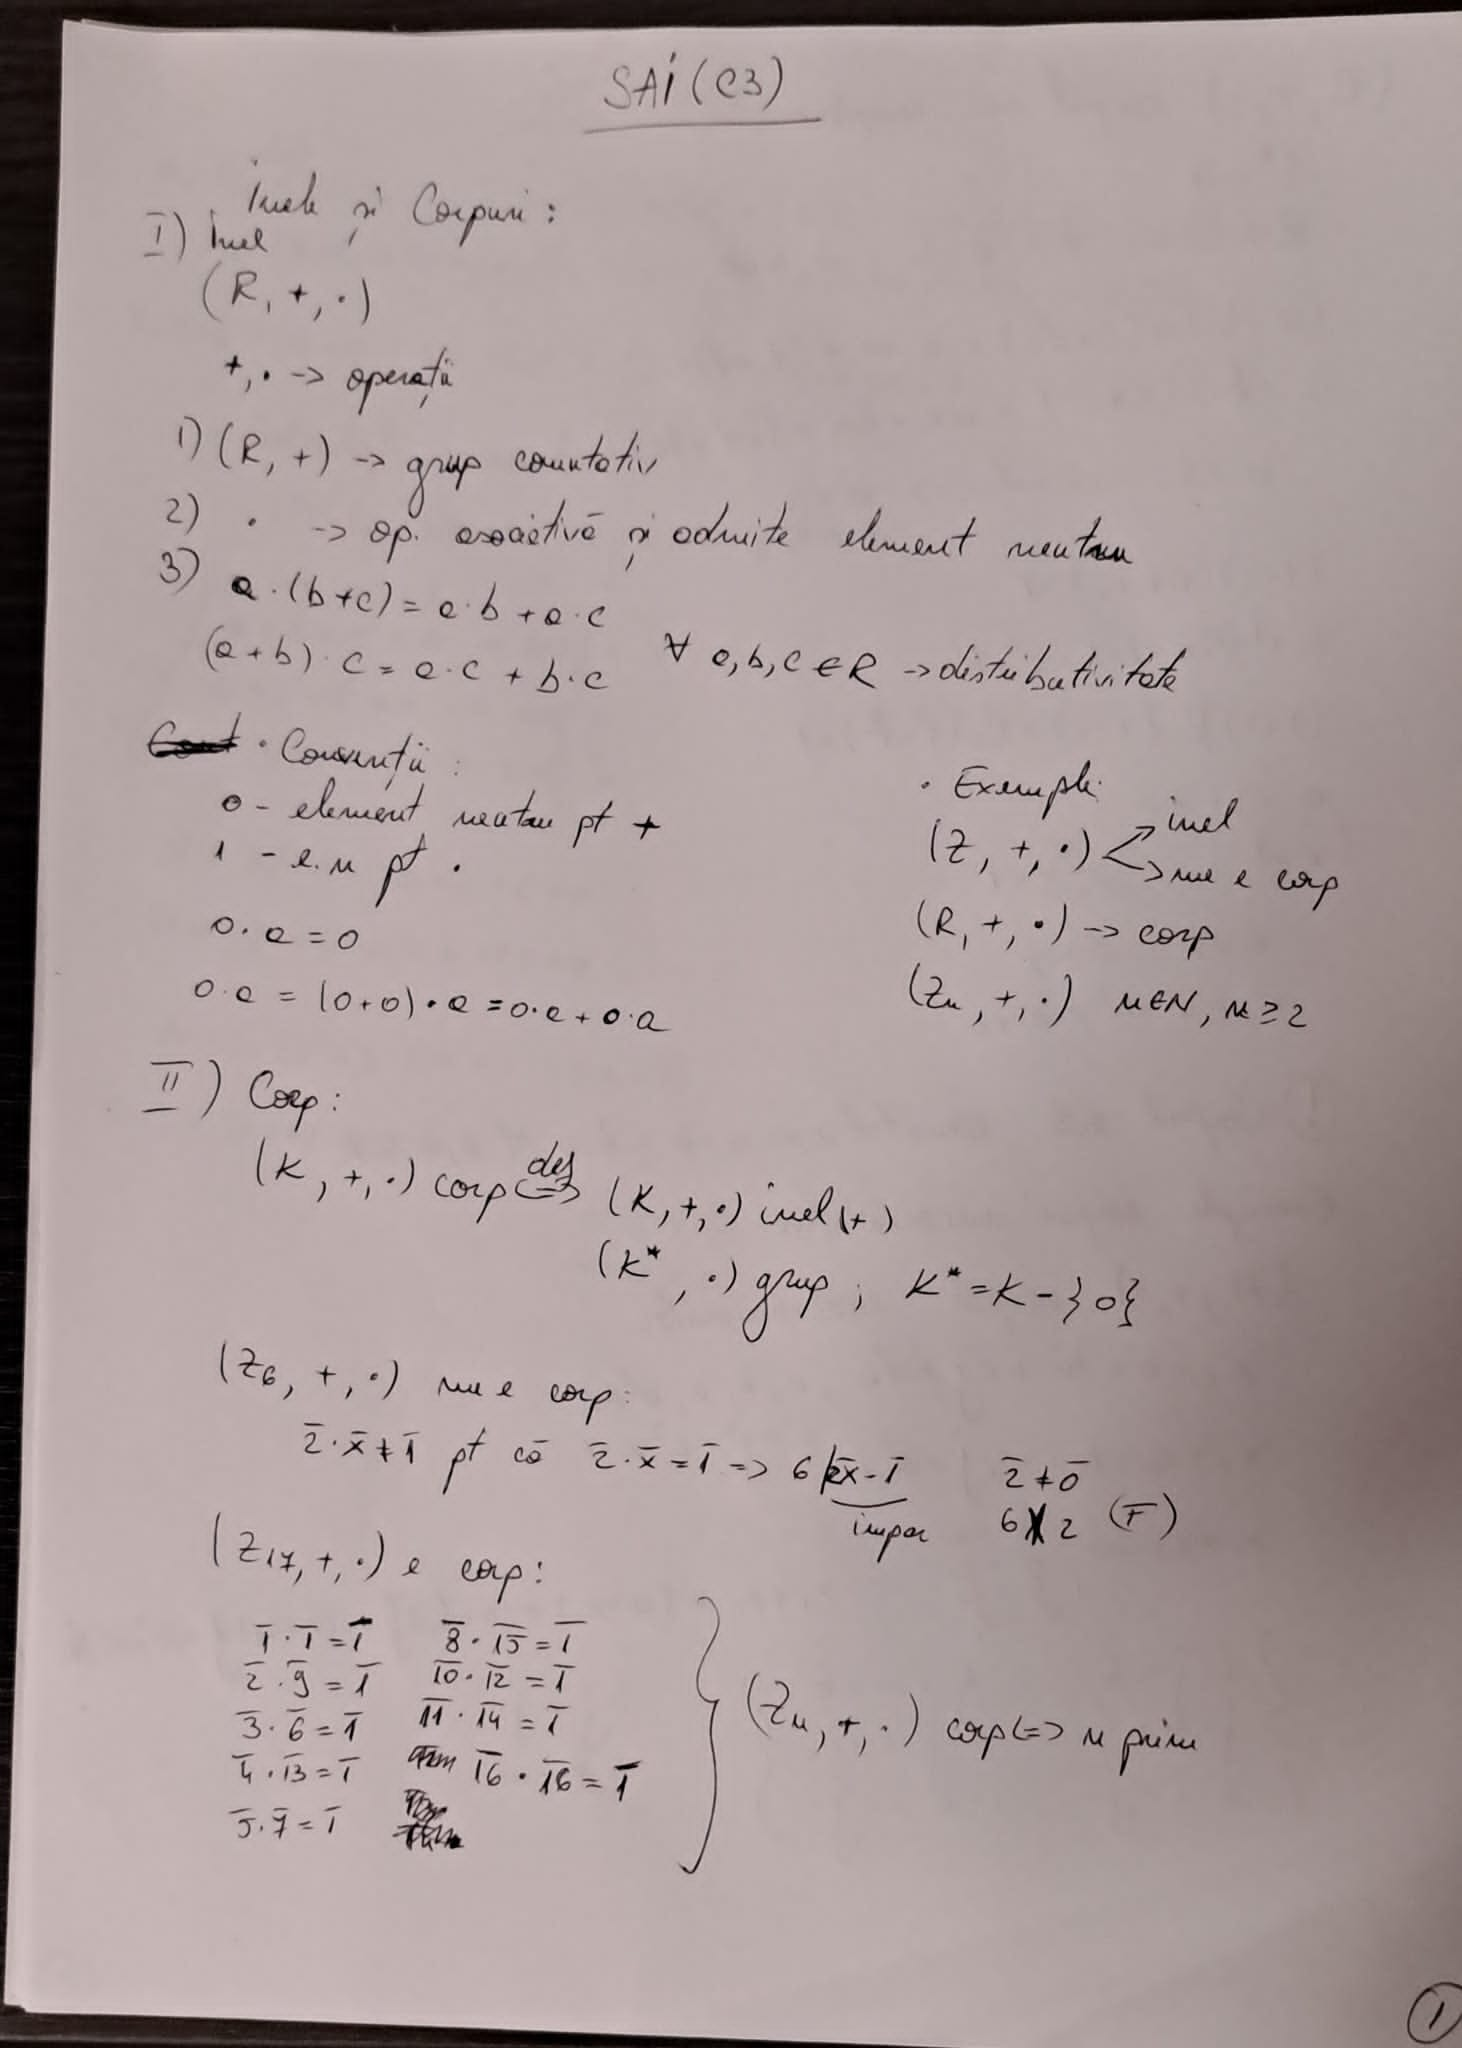 SAI (C3)
Inele și Corpuri:
I) Inel
(R, +, ·)
+, · -> operații
1) (R, +) -> grup comutativ
2) · -> op. asociativă și admite element neutru
3) a·(b+c) = a·b + a·c
(a+b)·c = a·c + b·c ∀ a,b,c ∈ R -> distributivitate
· Convenții:
0 - element neutru pt +
1 - e.n pt ·
0·a = 0
0·a = (0+0)·a = 0·a + 0·a
· Exemple:
(Z, +, ·) inel
-> nu e corp
(R, +, ·) -> corp
(Zn, +, ·) n∈N, n ≥ 2
II) Corp:
(K, +, ·) corp <=> def (K, +, ·) inel (+)
(K*, ·) grup ; K* = K - {0}
(Z6, +, ·) nu e corp:
2̄·x̄ ≠ 1̄ pt că 2̄·x̄ = 1̄ => 6 | 2x - 1 2̄ ≠ 0̄
impar 6 ∤ 2 (F)
(Z17, +, ·) e corp:
1̄·1̄ = 1̄ 8̄·15̄ = 1̄
2̄·9̄ = 1̄ 10̄·12̄ = 1̄
3̄·6̄ = 1̄ 11̄·14̄ = 1̄
4̄·13̄ = 1̄ 16̄·16̄ = 1̄
5̄·7̄ = 1̄
(Zn, +, ·) corp <=> n prim
1